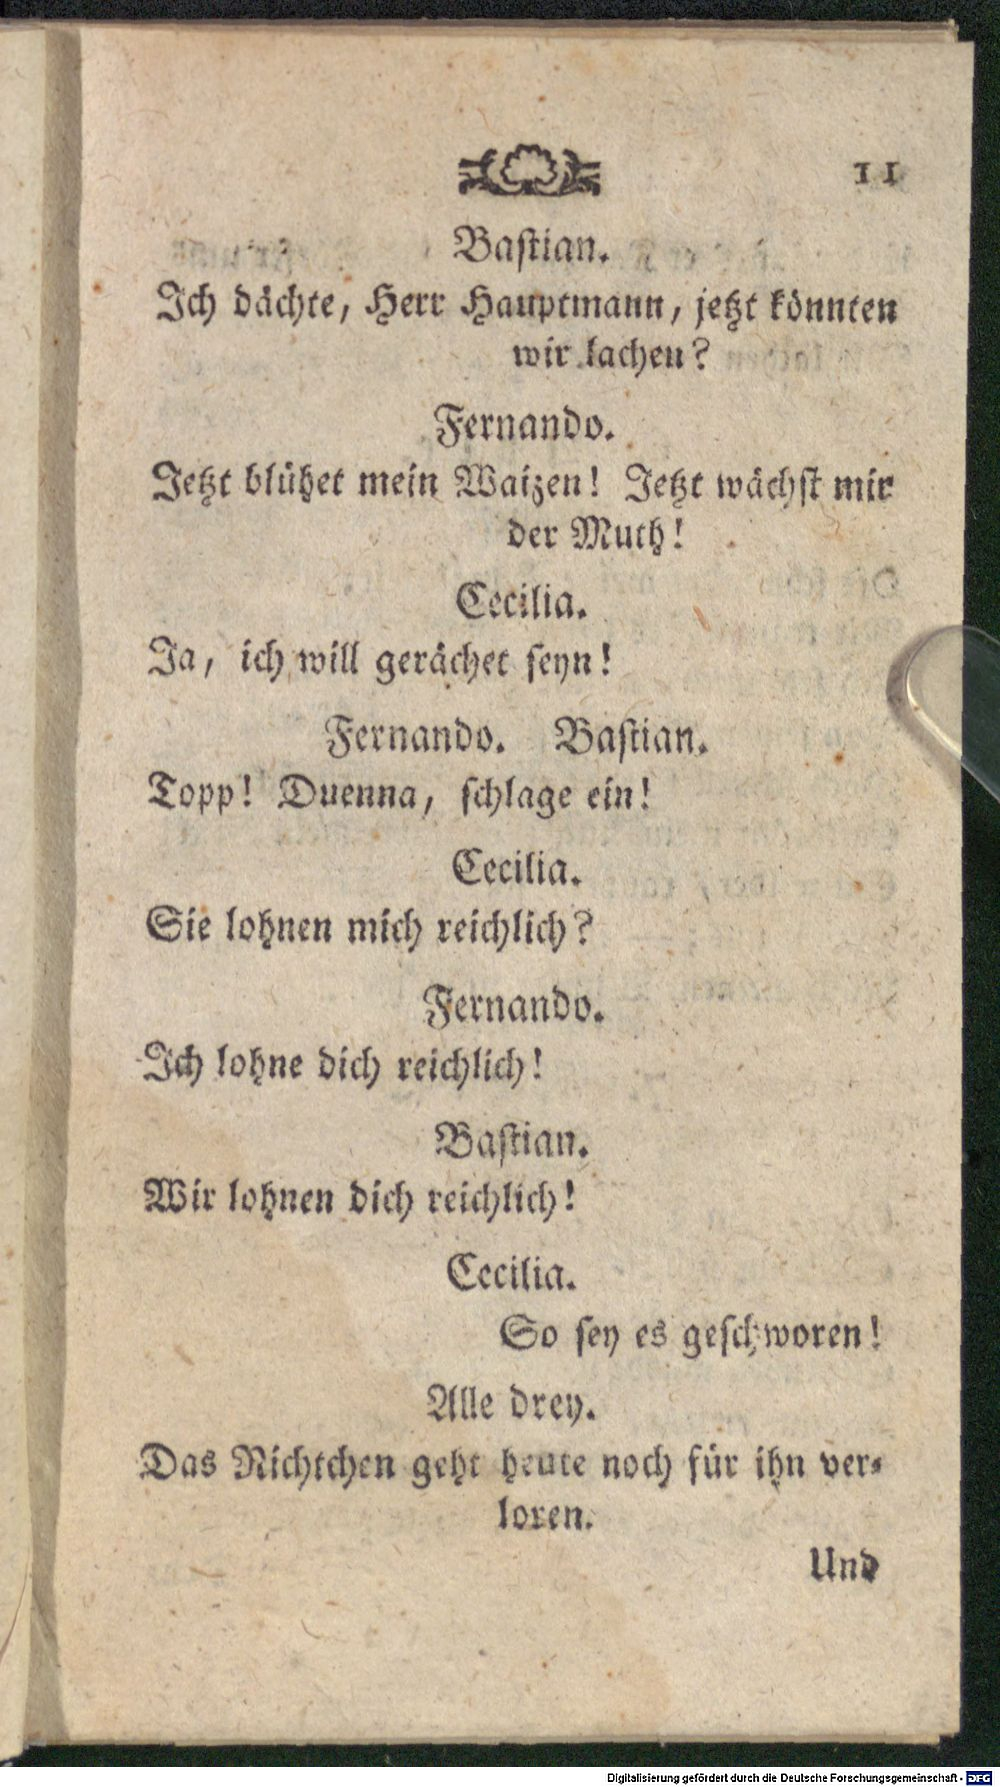 11
Bastian.
Ich dächte, Herr Hauptmann, jetzt könnten
wir lachen?
Fernando.
Jetzt blühet mein Waizen! Jetzt wächst mir
der Muth!
Cecilia.
Ja, ich will gerächet seyn!
Fernando. Bastian.
Topp! Duenna, schlage ein!
Cecilia.
Sie lohnen mich reichlich?
Fernando.
Ich lohne dich reichlich!
Bastian.
Wir lohnen dich reichlich!
Cecilia.
So sey es geschworen!
Alle drey.
Das Nichtchen geht heute noch für ihn ver-
loren.
Und
Digitalisierung gefördert durch die Deutsche Forschungsgemeinschaft - DFG